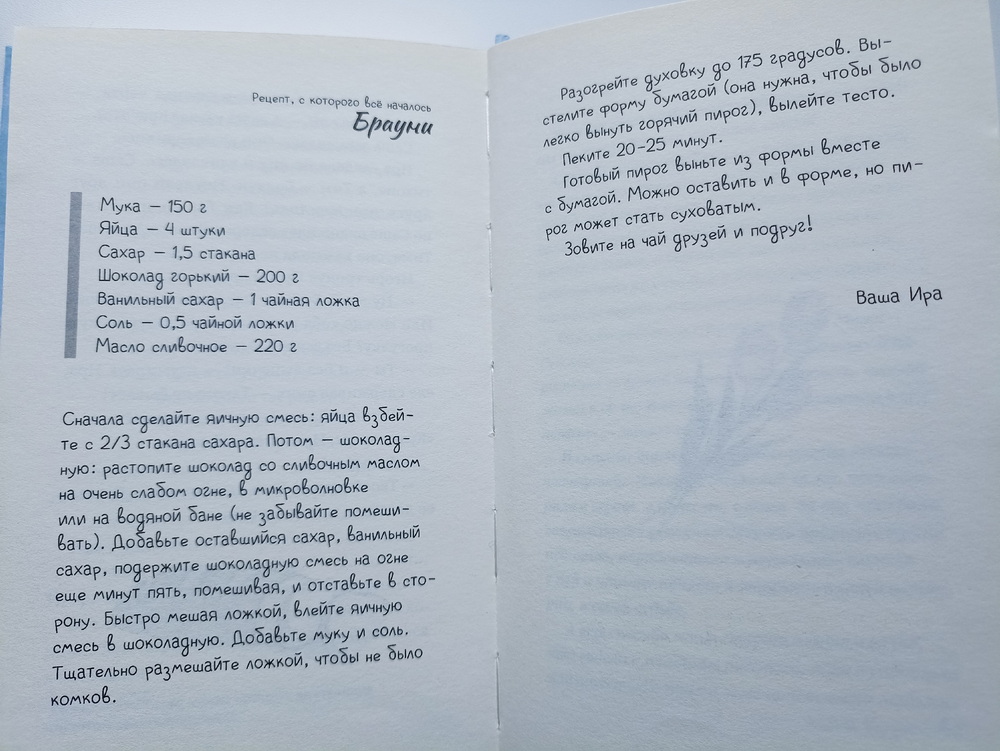 Рецепт, с которого всё началось
Брауни
Мука – 150 г
Яйца – 4 штуки
Сахар – 1,5 стакана
Шоколад горький – 200 г
Ванильный сахар – 1 чайная ложка
Соль – 0,5 чайной ложки
Масло сливочное – 220 г
Сначала сделайте яичную смесь: яйца взбей-
те с 2/3 стакана сахара. Потом – шоколад-
ную: растопите шоколад со сливочным маслом
на очень слабом огне, в микроволновке
или на водяной бане (не забывайте помеши-
вать). Добавьте оставшийся сахар, ванильный
сахар, подержите шоколадную смесь на огне
еще минут пять, помешивая, и отставьте в сто-
рону. Быстро мешая ложкой, влейте яичную
смесь в шоколадную. Добавьте муку и соль.
Тщательно размешайте ложкой, чтобы не было
комков.
Разогрейте духовку до 175 градусов. Вы-
стелите форму бумагой (она нужна, чтобы было
легко вынуть горячий пирог), вылейте тесто.
Пеките 20–25 минут.
Готовый пирог выньте из формы вместе
с бумагой. Можно оставить и в форме, но пи-
рог может стать суховатым.
Зовите на чай друзей и подруг!
Ваша Ира